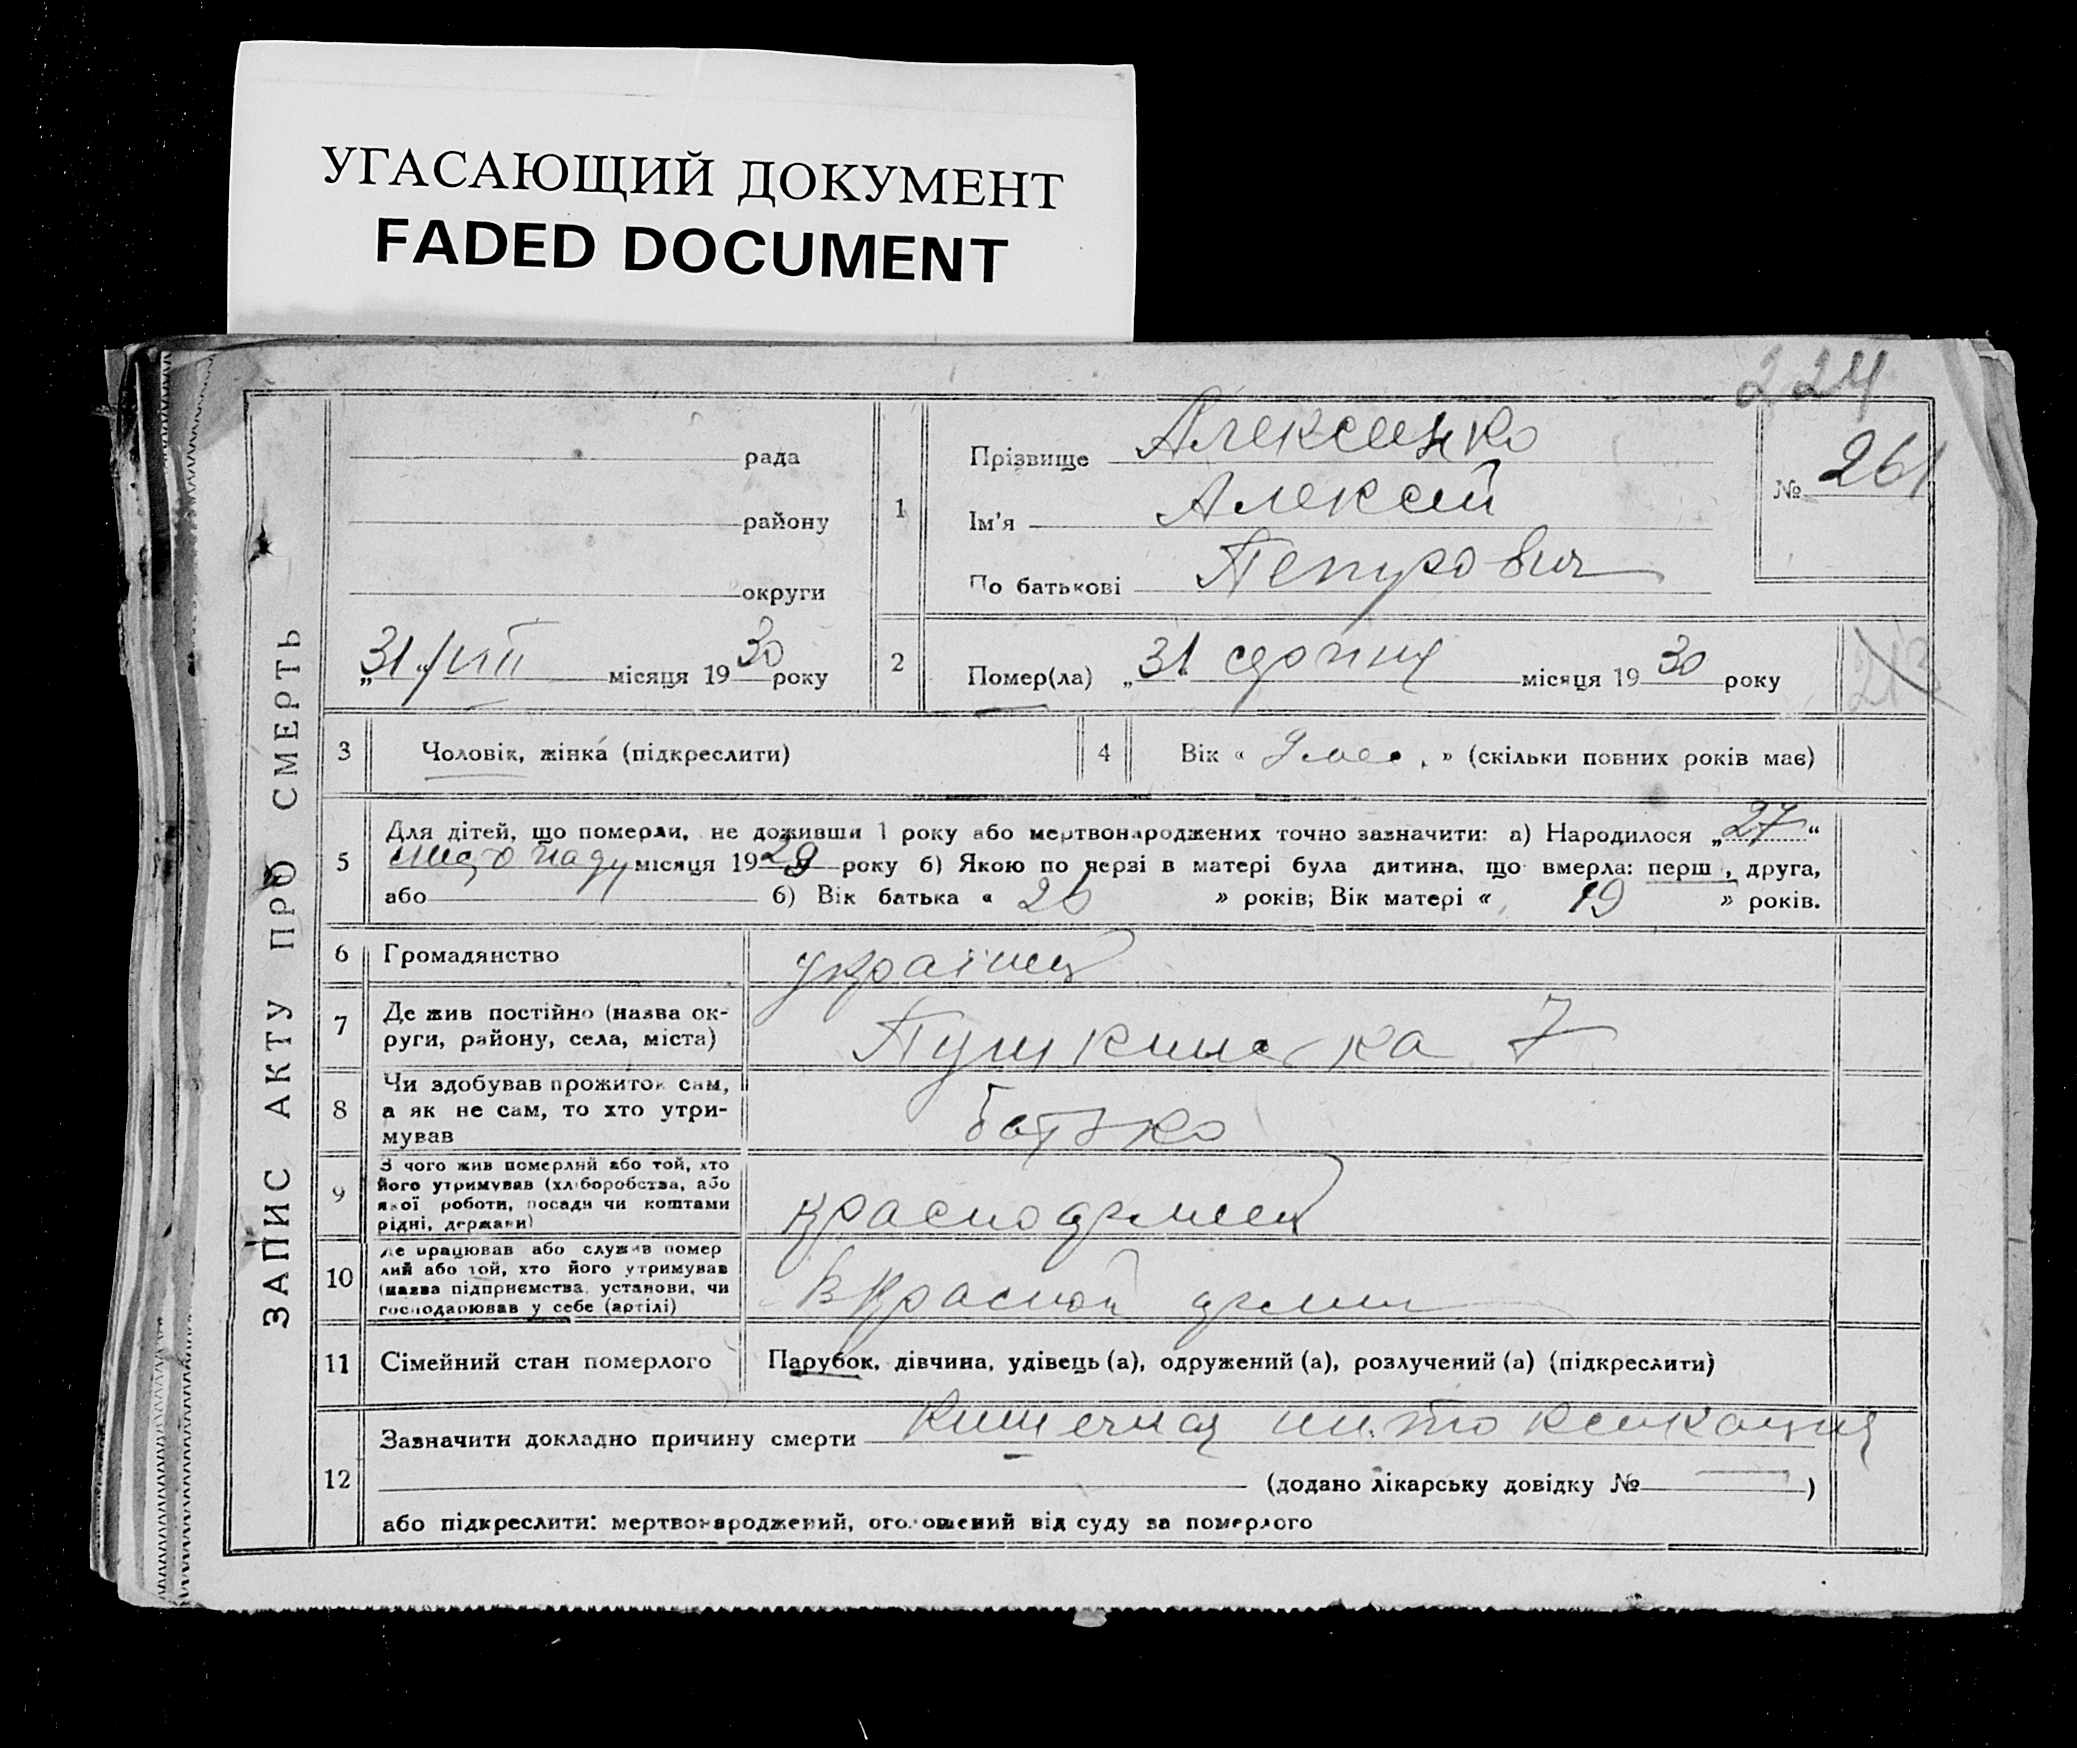 УГАСАЮЩИЙ ДОКУМЕНТ
FADED DOCUMENT
224
ЗАПИС АКТУ ПРО СМЕРТЬ
рада
району
округи
„31/VIII місяця 1930 року
1
Прізвище Алексенко
Ім'я Алексей
По батькові Петрович
№ 261
2
Помер(ла) „31 серпня місяця 1930 року
213
3
Чоловік, жінка (підкреслити)
4
Вік « 9 мес. » (скільки повних років має)
5
Для дітей, що померли, не доживши 1 року або мертвонароджених точно зазначити: а) Народилося „27“
листопаду місяця 1929 року б) Якою по черзі в матері була дитина, що вмерла: перш, друга,
або б) Вік батька « 26 » років; Вік матері « 19 » років.
6
Громадянство
українец
7
Де жив постійно (назва ок-
руги, району, села, міста)
Пушкинська 7
8
Чи здобував прожиток сам,
а як не сам, то хто утри-
мував
батько
9
З чого жив померлий або той, хто
його утримував (хліборобства, або
якої роботи, посади чи коштами
рідні, держави)
красноармеец
10
Де працював або служив помер
лий або той, хто його утримував
(назва підприємства, установи, чи
господарював у себе (артілі)
в Красной армии
11
Сімейний стан померлого
Парубок, дівчина, удівець (а), одружений (а), розлучений (а) (підкреслити)
12
Зазначити докладно причину смерти Кишечная интоксикация
(додано лікарську довідку № )
або підкреслити: мертвонароджений, оголошений від суду за померлого